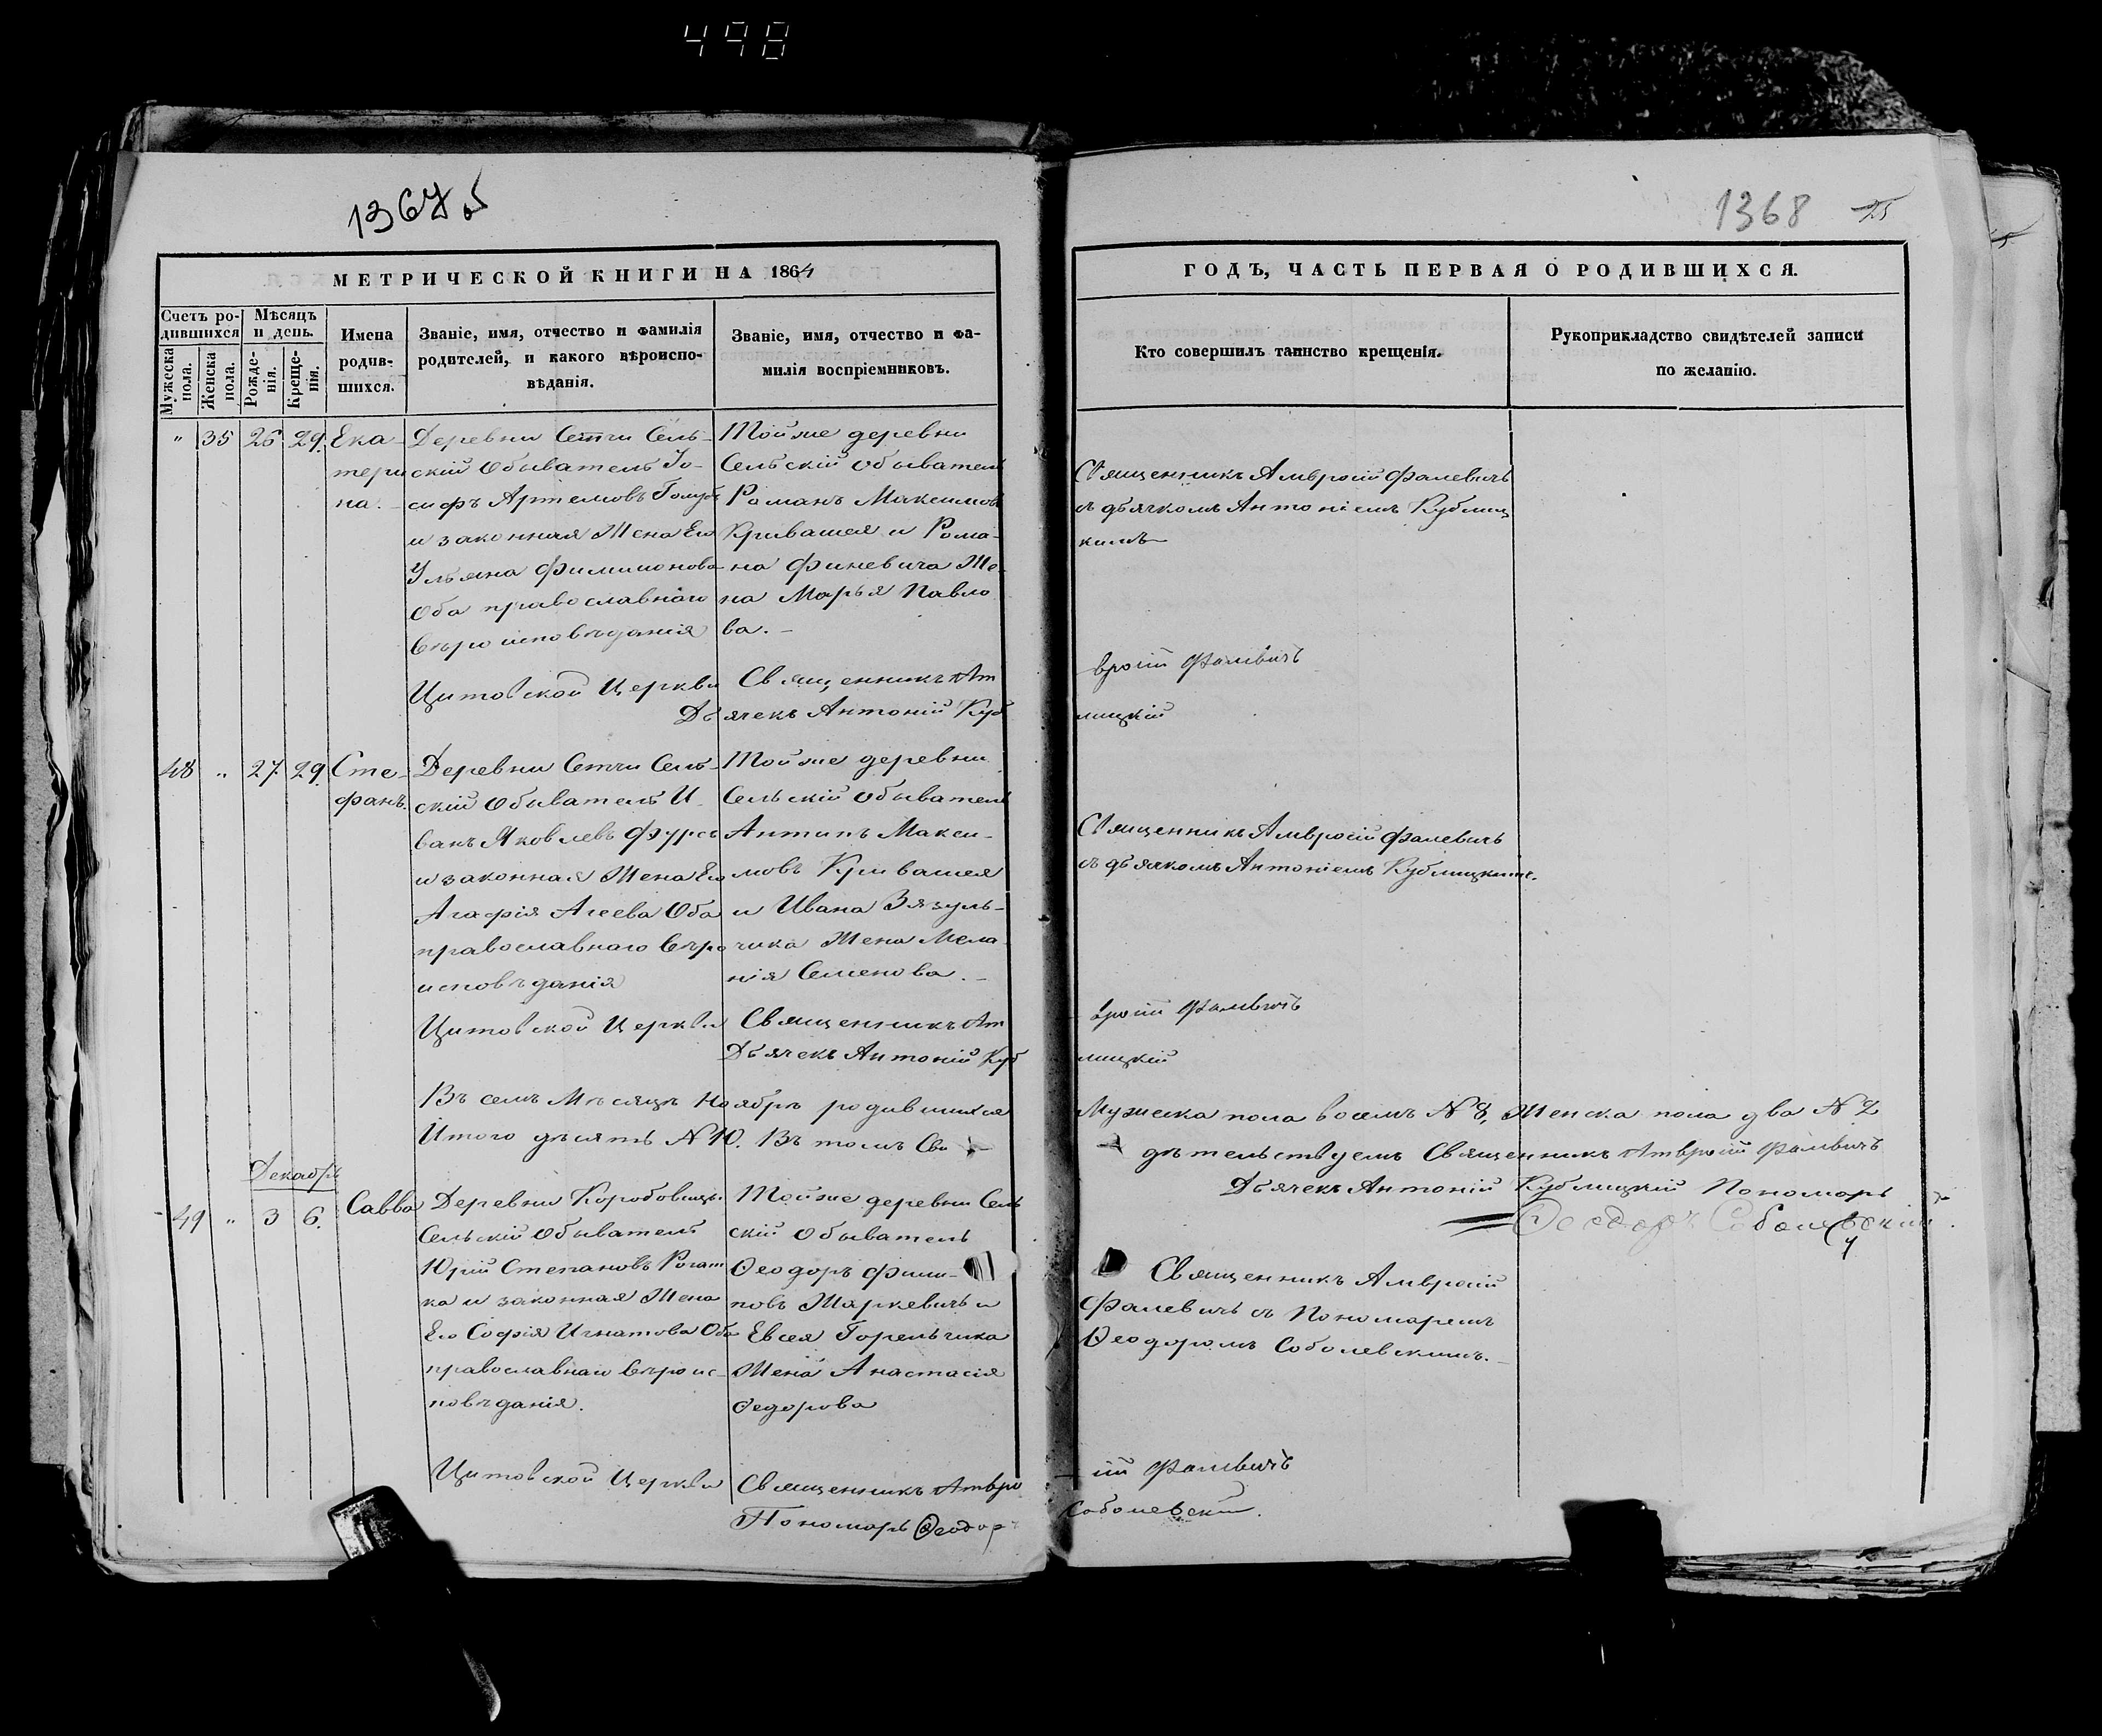 498
1367 об
1368 25
МЕТРИЧЕСКОЙ КНИГИ НА 1864
ГОДЪ, ЧАСТЬ ПЕРВАЯ О РОДИВШИХСЯ.
Счетъ ро-
дившихся
Мужеска
пола.
Женска
пола.
Мѣсяцъ
и день.
Рожде-
нія.
Креще-
нія.
Имена
родив-
шихся.
Званіе, имя, отчество и фамилія
родителей, и какого вѣроиспо-
вѣданія.
Званіе, имя, отчество и фа-
милія воспріемниковъ.
Кто совершилъ таинство крещенія.
Рукоприкладство свидѣтелей записи
по желанію.
" 35 26 29.
Ека-
тери
на.
Деревни Сетчи Сель-
скій Обыватель Іо-
сифъ Артемовъ Голубъ
и законная Жена Его
Ульяна Филимонова
Оба православнаго
вѣроисповѣданія
Тойже деревни
Сельскій Обыватель
Романъ Максимовъ
Кривашея и Рома-
на Финевича Же-
на Марья Павло
ва. -
Священникъ Амвросій Фалевичъ
съ дьячкомъ Антоніемъ Кублиц
кимъ
Цитовской Церкви Священникъ Ам
вросій Фалевичъ
Дьячекъ Антоній Куб
лицкій
48 " 27. 29.
Сте-
фанъ.
Деревни Сетчи Сель-
скій Обыватель И-
ванъ Яковлевъ Фурсъ
и законная Жена Его
Агафія Агеева Оба
православнаго вѣро
исповѣданія
Тойже деревни
Сельскій Обыватель
Антипъ Макси-
мовъ Кривашея
и Ивана Зязуль-
чика Жена Мела-
нія Семенова. -
Священникъ Амвросій Фалевичъ
съ дьячкомъ Антоніемъ Кублицкимъ.
Цитовской Церкви Священникъ Ам
вросій Фалевичъ
Дьячекъ Антоній Куб
лицкій
Въ семъ Мѣсяцѣ Ноябрѣ родившихся
Мужеска пола восемь N 8, Женска пола два N 2
Итого десять N 10. Въ томъ Сви
дѣтельствуемъ Священникъ Амвросій Фалевичъ
Дьячекъ Антоній Кублицкій Пономарь
Ѳеодоръ Соболевскій
Декабрь
49 " 3 6.
Савва
Деревни Коробовщ.
Сельскій Обыватель
Юрій Степановъ Рогат
ка и законная Жена
Его Софія Игнатова Оба
православнаго вѣроис-
повѣданія.
Тойже деревни Сель
скій Обыватель
Ѳеодоръ Фили-
повъ Шаркевичъ и
Евсея Горельчика
Жена Анастасія
Ѳедорова
Священникъ Амвросій
Фалевичъ съ Пономаремъ
Ѳеодоромъ Соболевскимъ. -
Цитовской Церкви Священникъ Амвро
сій Фалевичъ
Пономарь Ѳеодоръ
Соболевскій.